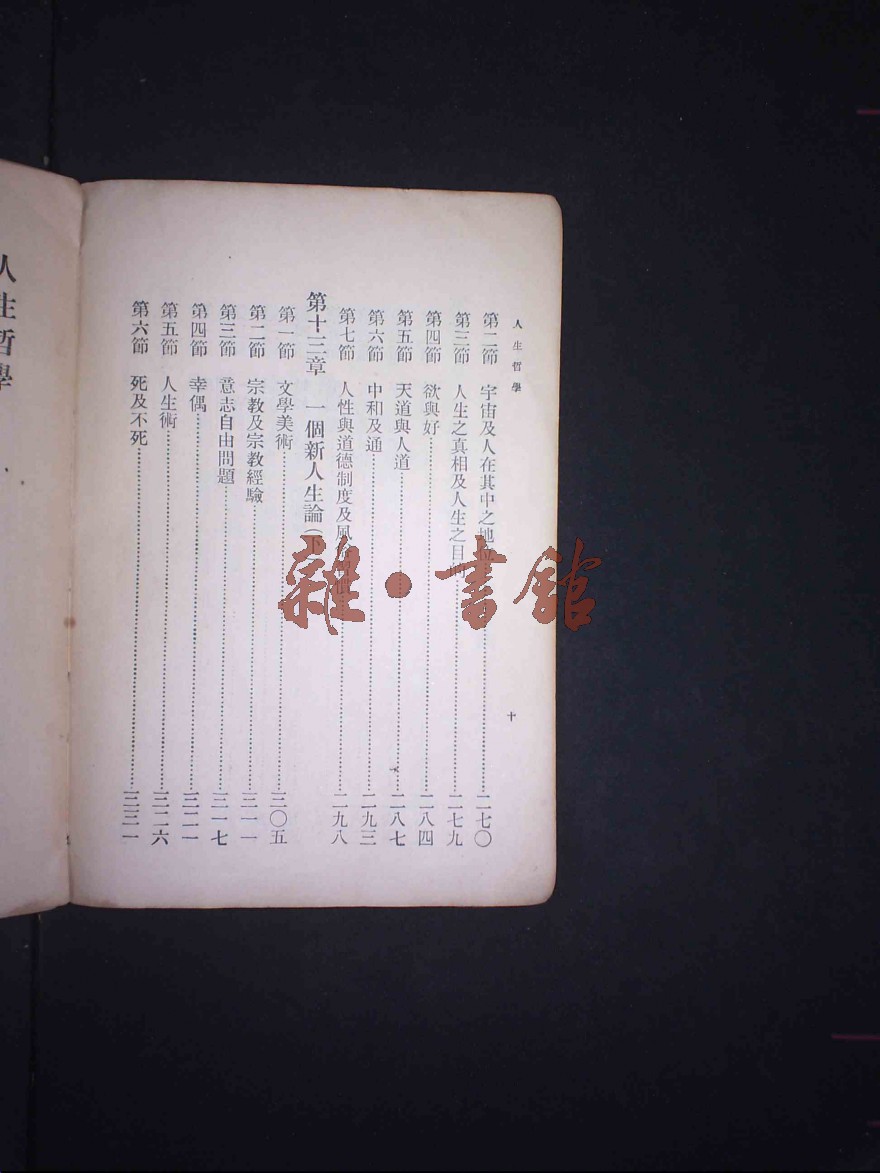 人生哲學
十
第二節　宇宙及人在其中之地　二七〇
第三節　人生之真相及人生之目　二七九
第四節　欲與好　二八四
第五節　天道與人道　二八七
第六節　中和及通　二九三
第七節　人性與道德制度及風　二九八
第十三章　一個新人生論（下
第一節　文學美術　三〇五
第二節　宗教及宗教經驗　三一一
第三節　意志自由問題　三一七
第四節　幸偶　三二一
第五節　人生術　三二六
第六節　死及不死　三三一
人生哲學
雜·書館